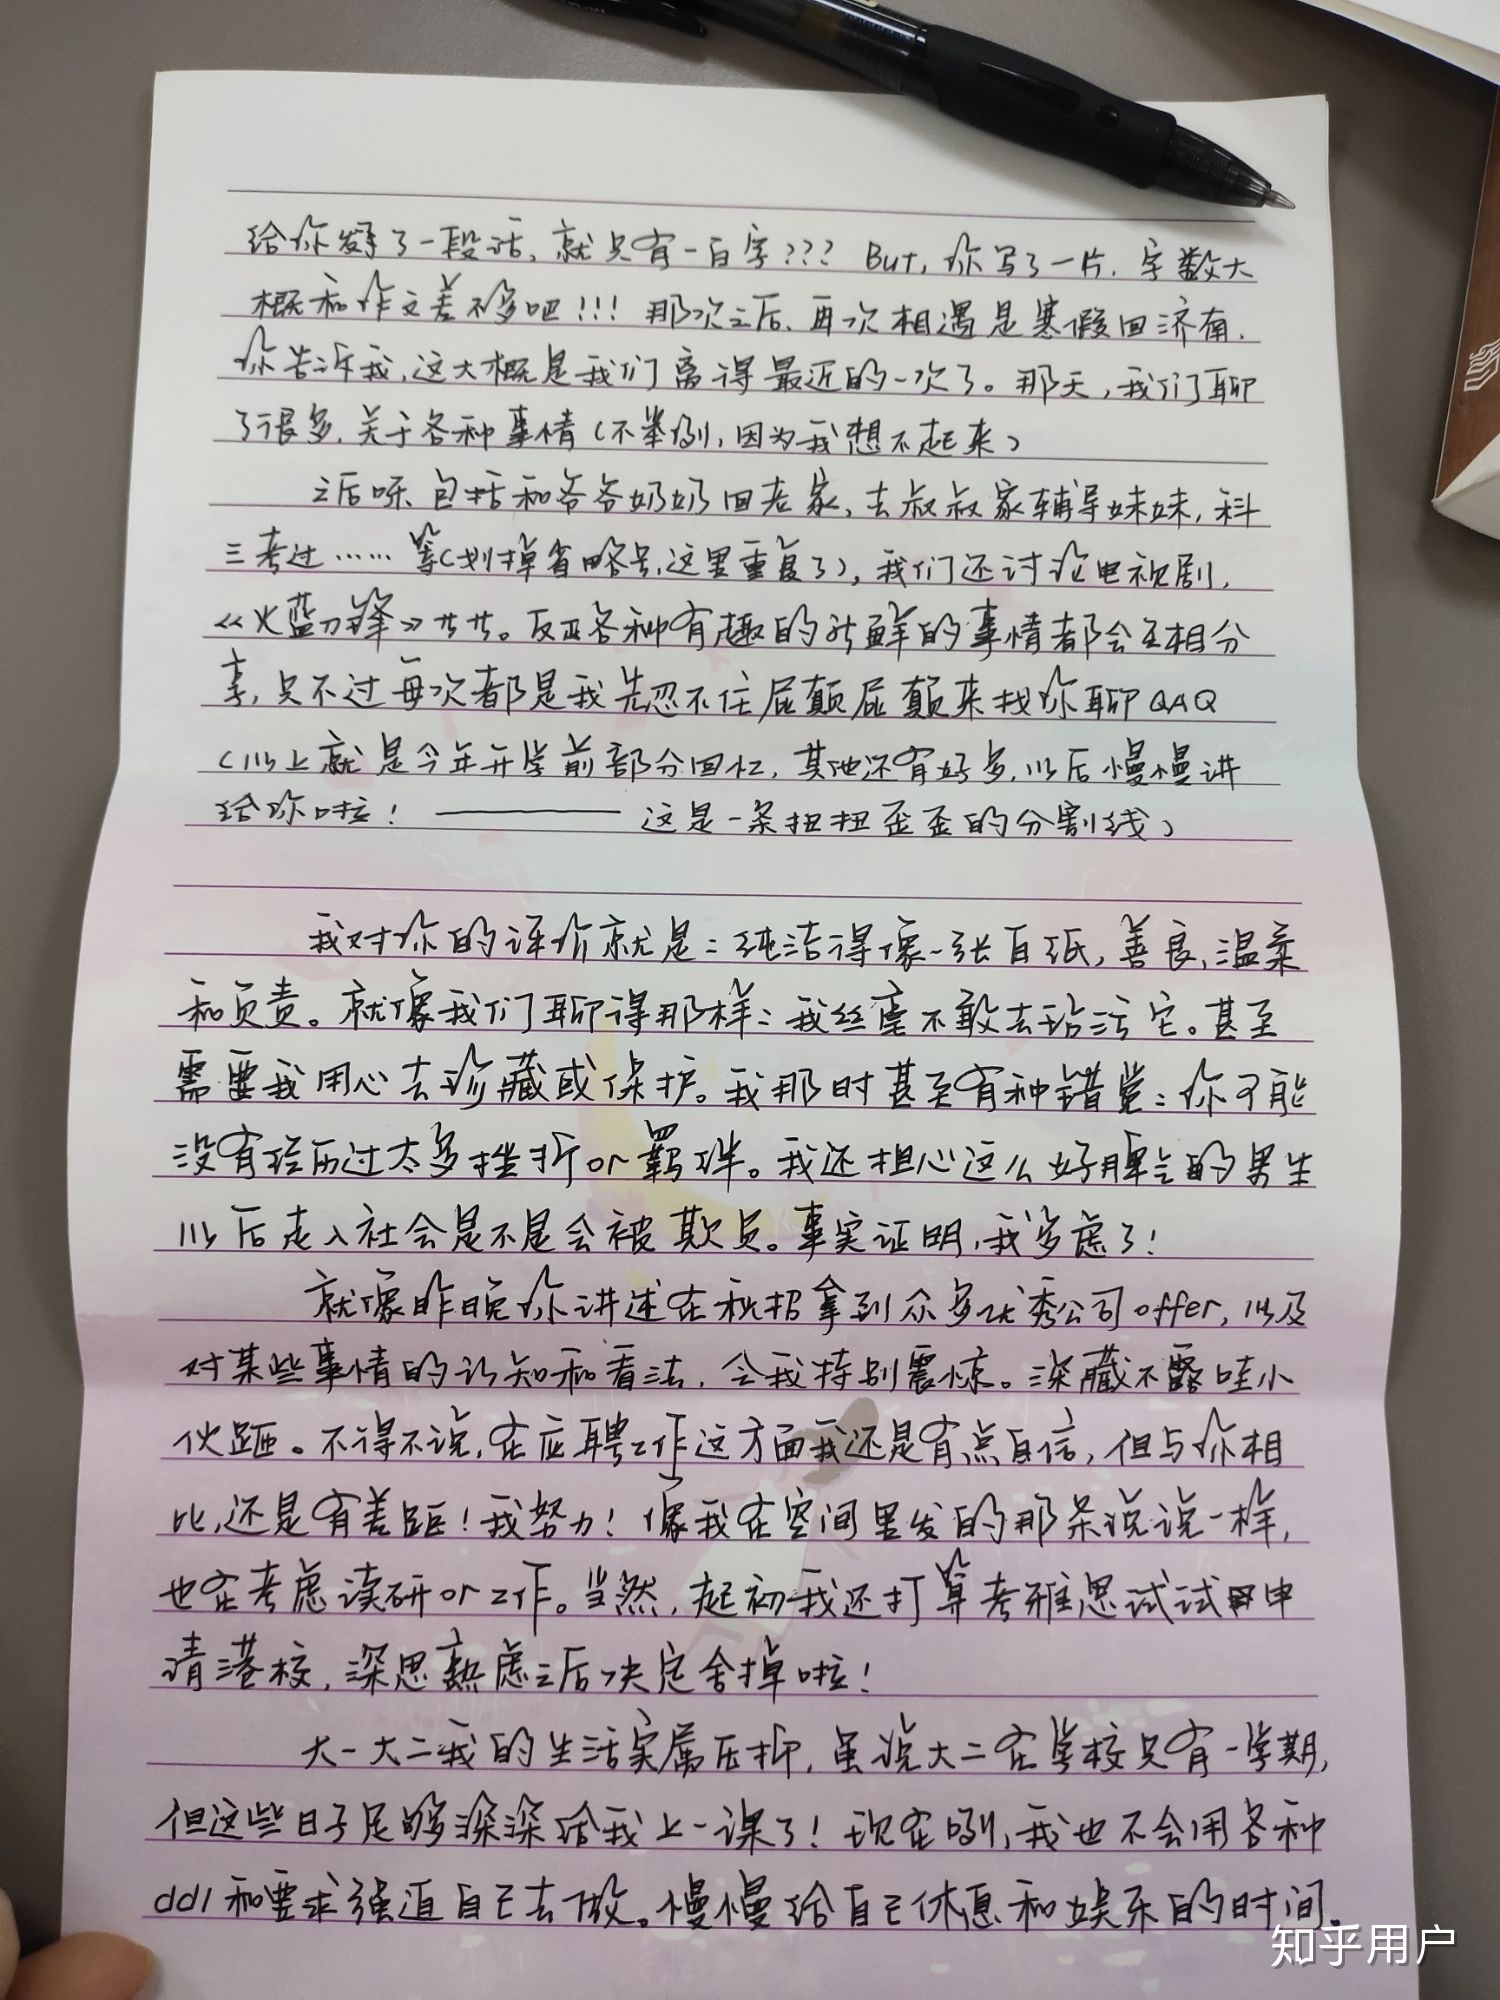 给你发了一段话，就只有一百字？？？ But，你写了一片，字数大
概和作文差不多吧！！！那次之后，再次相遇是寒假回济南，
你告诉我，这大概是我们离得最近的一次了。那天，我们聊
了很多，关于各种事情（不举例，因为我想不起来）
之后呀，包括和爷爷奶奶回老家，去叔叔家辅导妹妹，科
三考过……等（划掉省略号，这里重复了），我们还讨论电视剧，
《火蓝刀锋》廿廿。反正各种有趣的新鲜的事情都会互相分
享，只不过每次都是我先忍不住屁颠屁颠来找你聊QAQ
（以上就是今年开学前部分回忆，其他还有好多，以后慢慢讲
给你啦！ ———— 这是一条扭扭歪歪的分割线）
我对你的评价就是：纯洁得像一张白纸，善良，温柔
和负责。就像我们聊得那样：我丝毫不敢去玷污它。甚至
需要我用心去珍藏或保护。我那时甚至有种错觉：你可能
没有经历过太多挫折or羁绊。我还担心这么好脾气的男生
以后走入社会是不是会被欺负。事实证明，我多虑了！
就像昨晚你讲述在秋招拿到众多优秀公司offer，以及
对某些事情的认知和看法，令我特别震惊。深藏不露哇小
伙砸。不得不说，在应聘工作这方面我还是有点自信，但与你相
比，还是有差距！我努力！像我在空间里发的那条说说一样，
也在考虑读研or工作。当然，起初我还打算考雅思试试申
请港校，深思熟虑之后决定舍掉啦！
大一大二我的生活实属压抑，虽说大二在学校只有一学期，
但这些日子足够深深给我上一课了！现在咧，我也不会用各种
ddl和要求强迫自己去做。慢慢给自己休息和娱乐的时间。
知乎用户